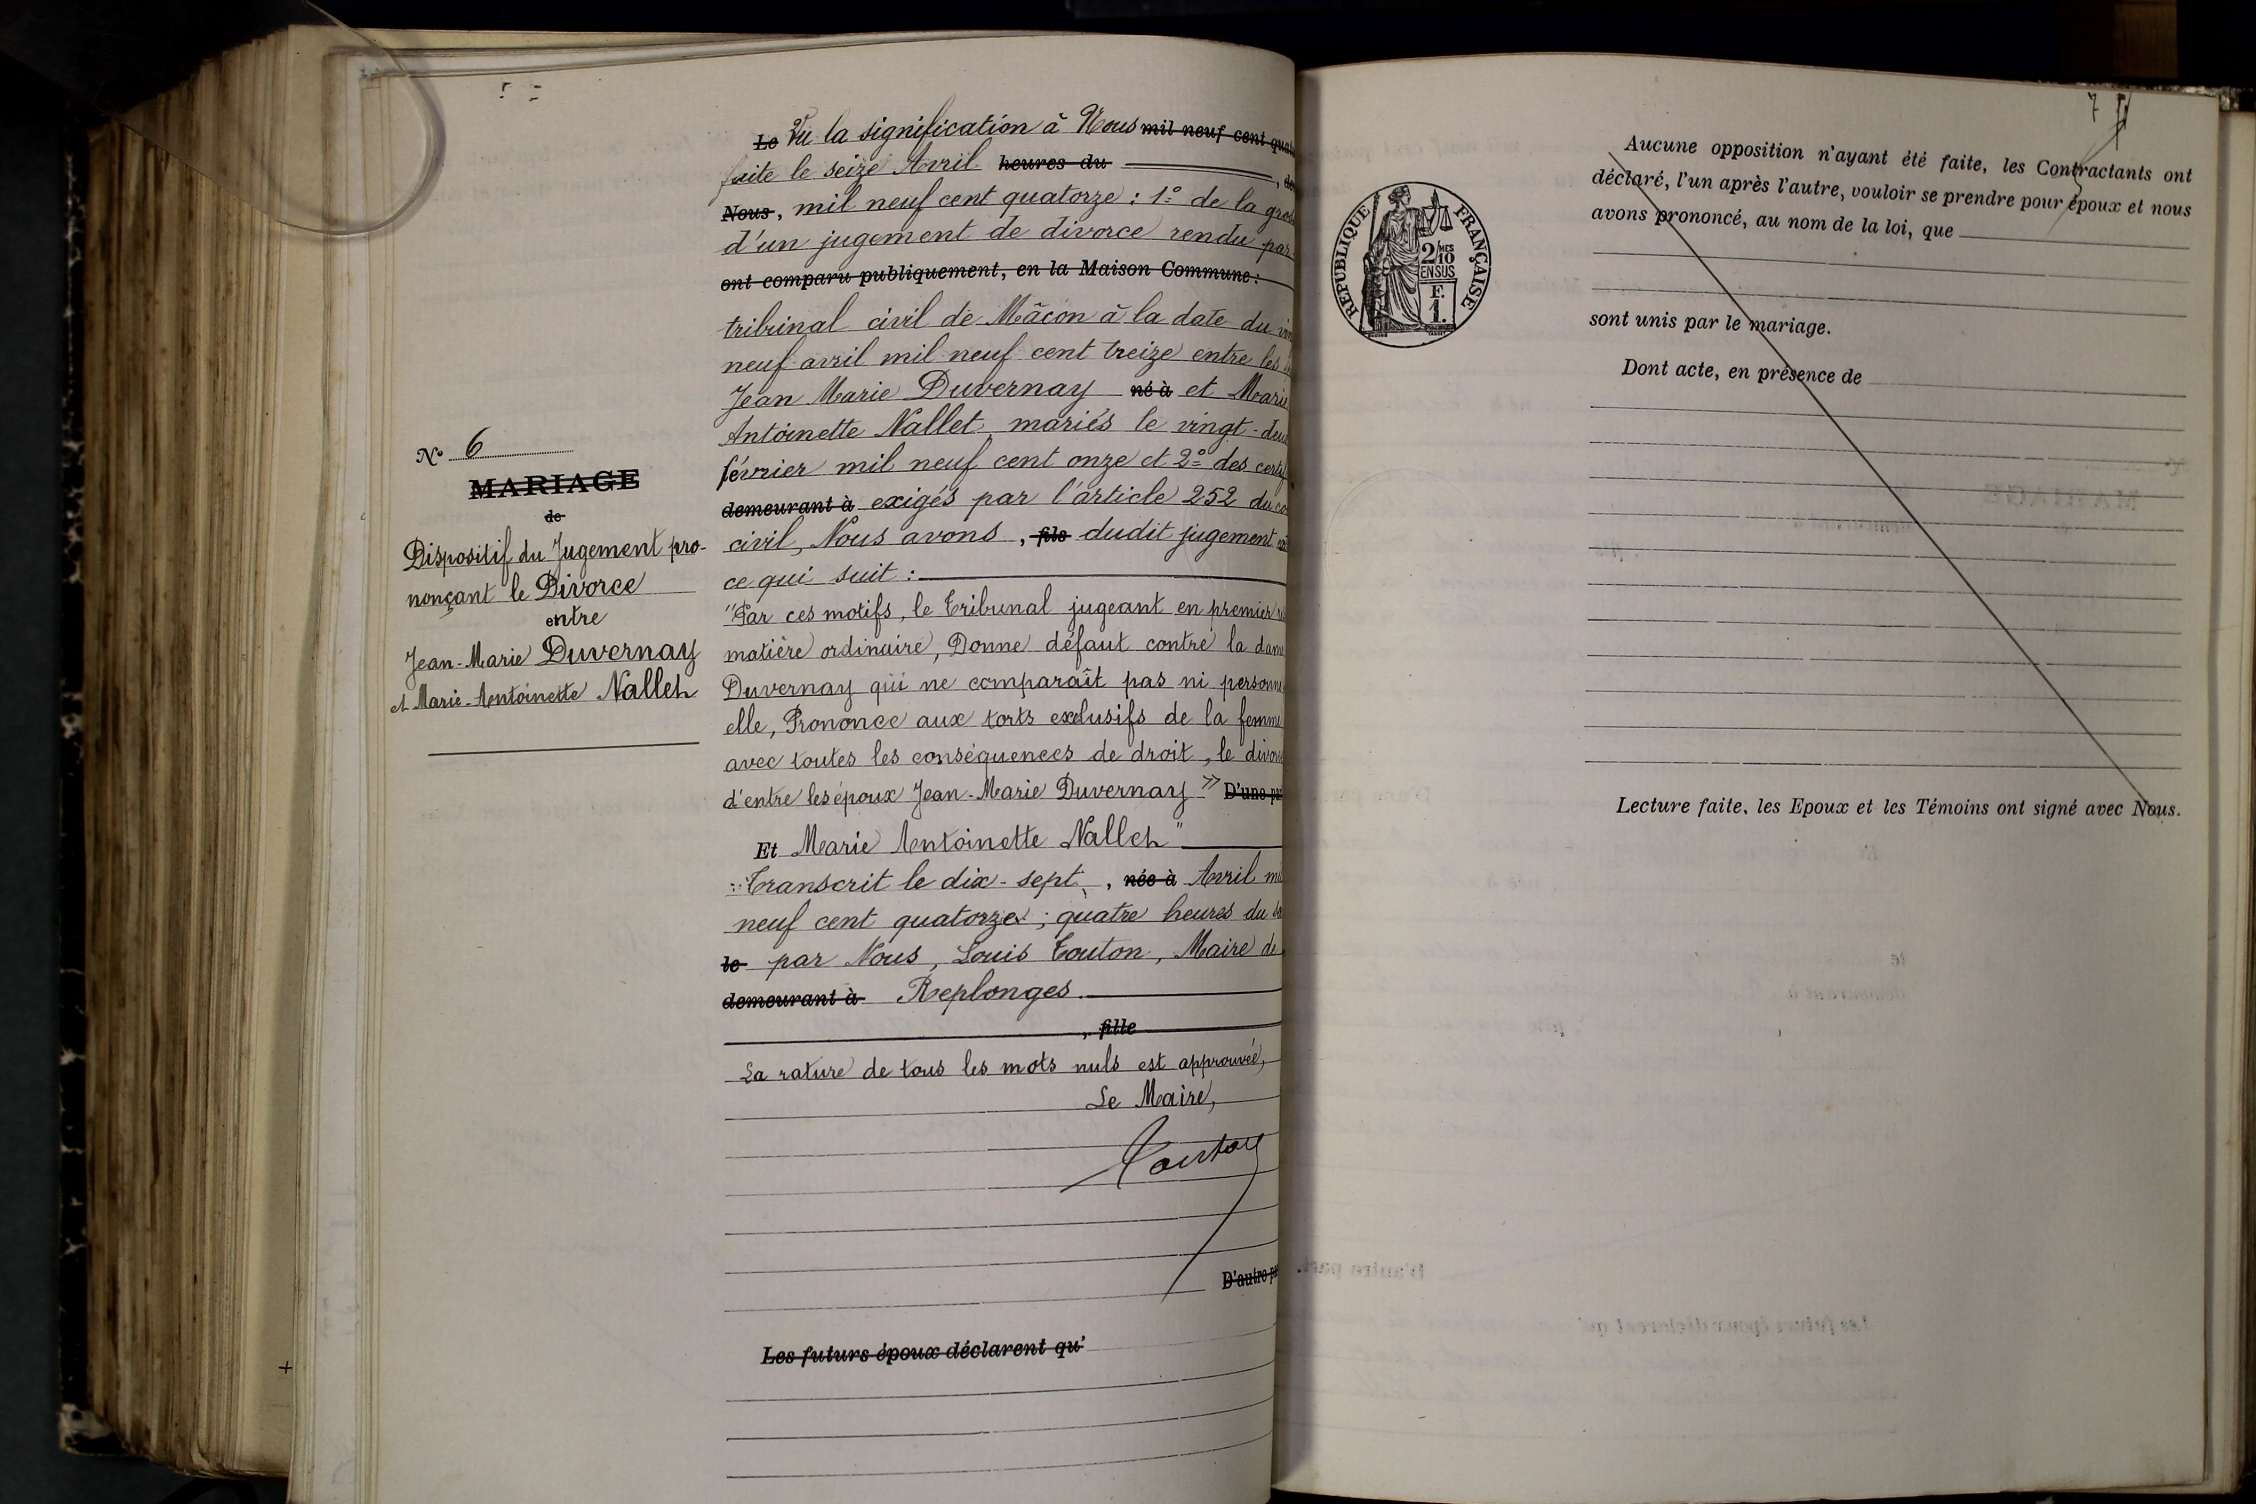 N° 6
MARIAGE
de
Dispositif du Jugement pro-
nonçant le Divorce
entre
Jean-Marie Duvernay
et Marie-Antoinette Nallet
Le Vu la signification à Nous mil neuf cent
faite le seize Avril heures du
Nous, mil neuf cent quatorze : 1° de la
d'un jugement de divorce rendu par
ont comparu publiquement, en la Maison Commune :
tribunal civil de Mâcon à la date du
neuf avril mil neuf cent treize entre les
Jean Marie Duvernay né à et Marie
Antoinette Nallet mariés le vingt-deux
février mil neuf cent onze et 2° des
demeurant à exigés par l'article 252 du
civil, Nous avons, fils dudit jugement
ce qui suit :
"Par ces motifs, le Tribunal jugeant en premier
matière ordinaire, Donne défaut contre la dame
Duvernay qui ne comparaît pas ni personne
elle, Prononce aux torts exclusifs de la femme
avec toutes les conséquences de droit, le
d'entre les époux Jean-Marie Duvernay" D'une
Et Marie Antoinette Nallet"
Transcrit le dix-sept, née à Avril
neuf cent quatorze ; quatre heures du
le par Nous, Louis Touton, Maire de
demeurant à Replonges.
, fille
La rature de tous les mots nuls est approuvée,
Le Maire,
Touton
D'autre
Les futurs époux déclarent qu'
RÉPUBLIQUE FRANÇAISE
2/10 MES
EN SUS
F.
1.
7
Aucune opposition n'ayant été faite, les Contractants ont
déclaré, l'un après l'autre, vouloir se prendre pour époux et nous
avons prononcé, au nom de la loi, que
sont unis par le mariage.
Dont acte, en présence de
Lecture faite, les Epoux et les Témoins ont signé avec Nous.